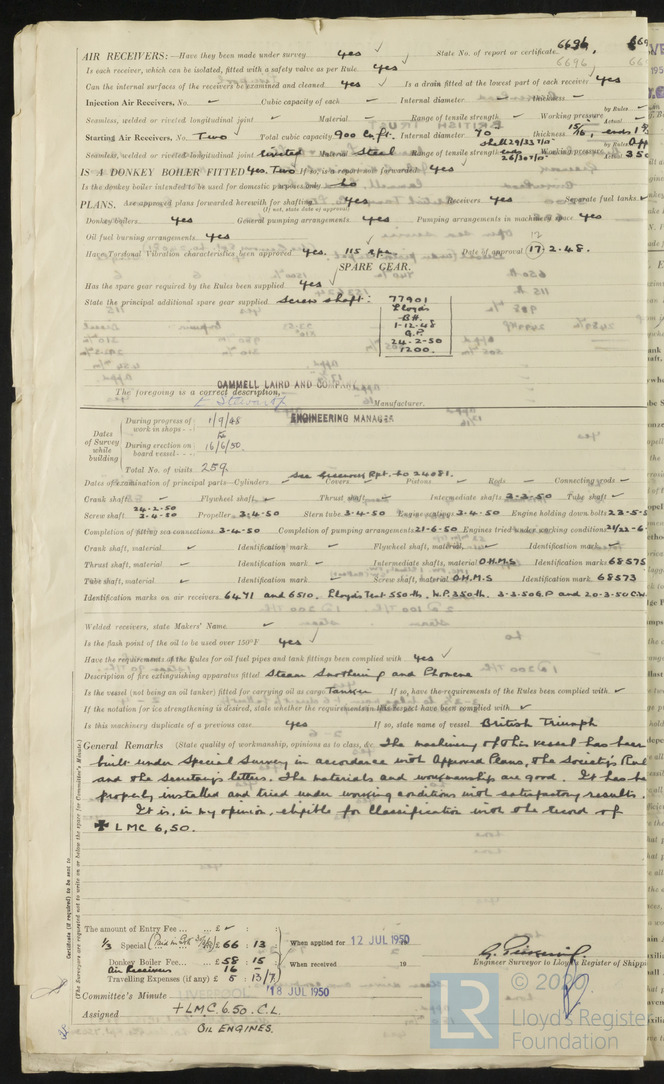 AIR RECEIVERS:—Have they been made under survey yes ✓ State No. of report or certificate 6696,
Is each receiver, which can be isolated, fitted with a safety valve as per Rule yes ✓ 6696
Can the internal surfaces of the receivers be examined and cleaned yes ✓ Is a drain fitted at the lowest part of each receiver yes
Injection Air Receivers, No. ✓ Cubic capacity of each ✓ Internal diameter ✓ thickness ✓
Seamless, welded or riveted longitudinal joint ✓ Material ✓ Range of tensile strength ✓ Working pressure by Rules Actual
Starting Air Receivers, No. Two Total cubic capacity 900 cu.ft. Internal diameter 70 thickness 15/16, ends
Seamless, welded or riveted longitudinal joint riveted Material Steel Range of tensile strength shell 29/33 T/□" ends 26/30 T/□" Working pressure by Rules Actual
IS A DONKEY BOILER FITTED yes. Two If so, is a report now forwarded yes
Is the donkey boiler intended to be used for domestic purposes only no
PLANS. Are approved plans forwarded herewith for shafting yes Receivers yes Separate fuel tanks ✓
(If not, state date of approval)
Donkey boilers yes General pumping arrangements yes Pumping arrangements in machinery space yes
Oil fuel burning arrangements yes
Have Torsional Vibration characteristics been approved yes. 115 Date of approval 17.2.48.
SPARE GEAR.
Has the spare gear required by the Rules been supplied yes ✓
State the principal additional spare gear supplied Screw shaft: 77901
Lloyds
B.H.
1-12-48
G.P.
24-2-50
1200.
CAMMELL LAIRD AND COMPANY
The foregoing is a correct description,
Manufacturer.
ENGINEERING MANAGER
Dates of Survey while building
During progress of work in shops - - 1/9/48
to
During erection on board vessel - - - 16/6/50.
Total No. of visits 259.
Dates of examination of principal parts—Cylinders See Greenock Rpt. No 24081. Covers Pistons Rods Connecting rods
Crank shaft ✓ Flywheel shaft ✓ Thrust shaft ✓ Intermediate shafts 3-3-50 Tube shaft ✓
Screw shaft 24-2-50 3-4-50 Propeller 3-4-50 Stern tube 3-4-50 Engine seatings 3-4-50 Engine holding down bolts 23-5-
Completion of fitting sea connections 3-4-50 Completion of pumping arrangements 21-6-50 Engines tried under working conditions 21/22-6-
Crank shaft, material ✓ Identification mark ✓ Flywheel shaft, material ✓ Identification mark ✓
Thrust shaft, material ✓ Identification mark ✓ Intermediate shafts, material O.H.M.S Identification marks 68575
Tube shaft, material ✓ Identification mark ✓ Screw shaft, material O.H.M.S Identification mark 68573
Identification marks on air receivers 6471 and 6510. Lloyd's Test 550 lb. W.P. 350 lb. 3-3-50 G.P and 20-3-50 C.W.
Welded receivers, state Makers' Name ✓
Is the flash point of the oil to be used over 150°F yes ✓
Have the requirements of the Rules for oil fuel pipes and tank fittings been complied with yes ✓
Description of fire extinguishing apparatus fitted Steam Smothering and Phomene
Is the vessel (not being an oil tanker) fitted for carrying oil as cargo Tanker If so, have the requirements of the Rules been complied with ✓
If the notation for ice strengthening is desired, state whether the requirements in this respect have been complied with ✓
Is this machinery duplicate of a previous case yes If so, state name of vessel British Triumph
General Remarks (State quality of workmanship, opinions as to class, &c. The machinery of this vessel has been
built under Special Survey in accordance with Approved Plans, the Society's Rul
and the Secretary's letters. The materials and workmanship are good. It has be
properly installed and tried under working conditions with satisfactory results.
It is, in my opinion, eligible for classification with the record of
✠ LMC 6,50.
Certificate (if required) to be sent to
(The Surveyors are requested not to write on or below the space for Committee's Minute.)
The amount of Entry Fee ... ... £ ✓
1/3 Special £ 66 : 13 When applied for 12 JUL 1950
Donkey Boiler Fee... ... £ 58 : 15
Air Receivers 16 - When received 19
Travelling Expenses (if any) £ 5 : 13/7
Engineer Surveyor to Lloyd's Register of Shippi
Committee's Minute LIVERPOOL 18 JUL 1950
Assigned + LMC. 6.50. C.L.
OIL ENGINES.
LR
© 2020
Lloyd's Register
Foundation